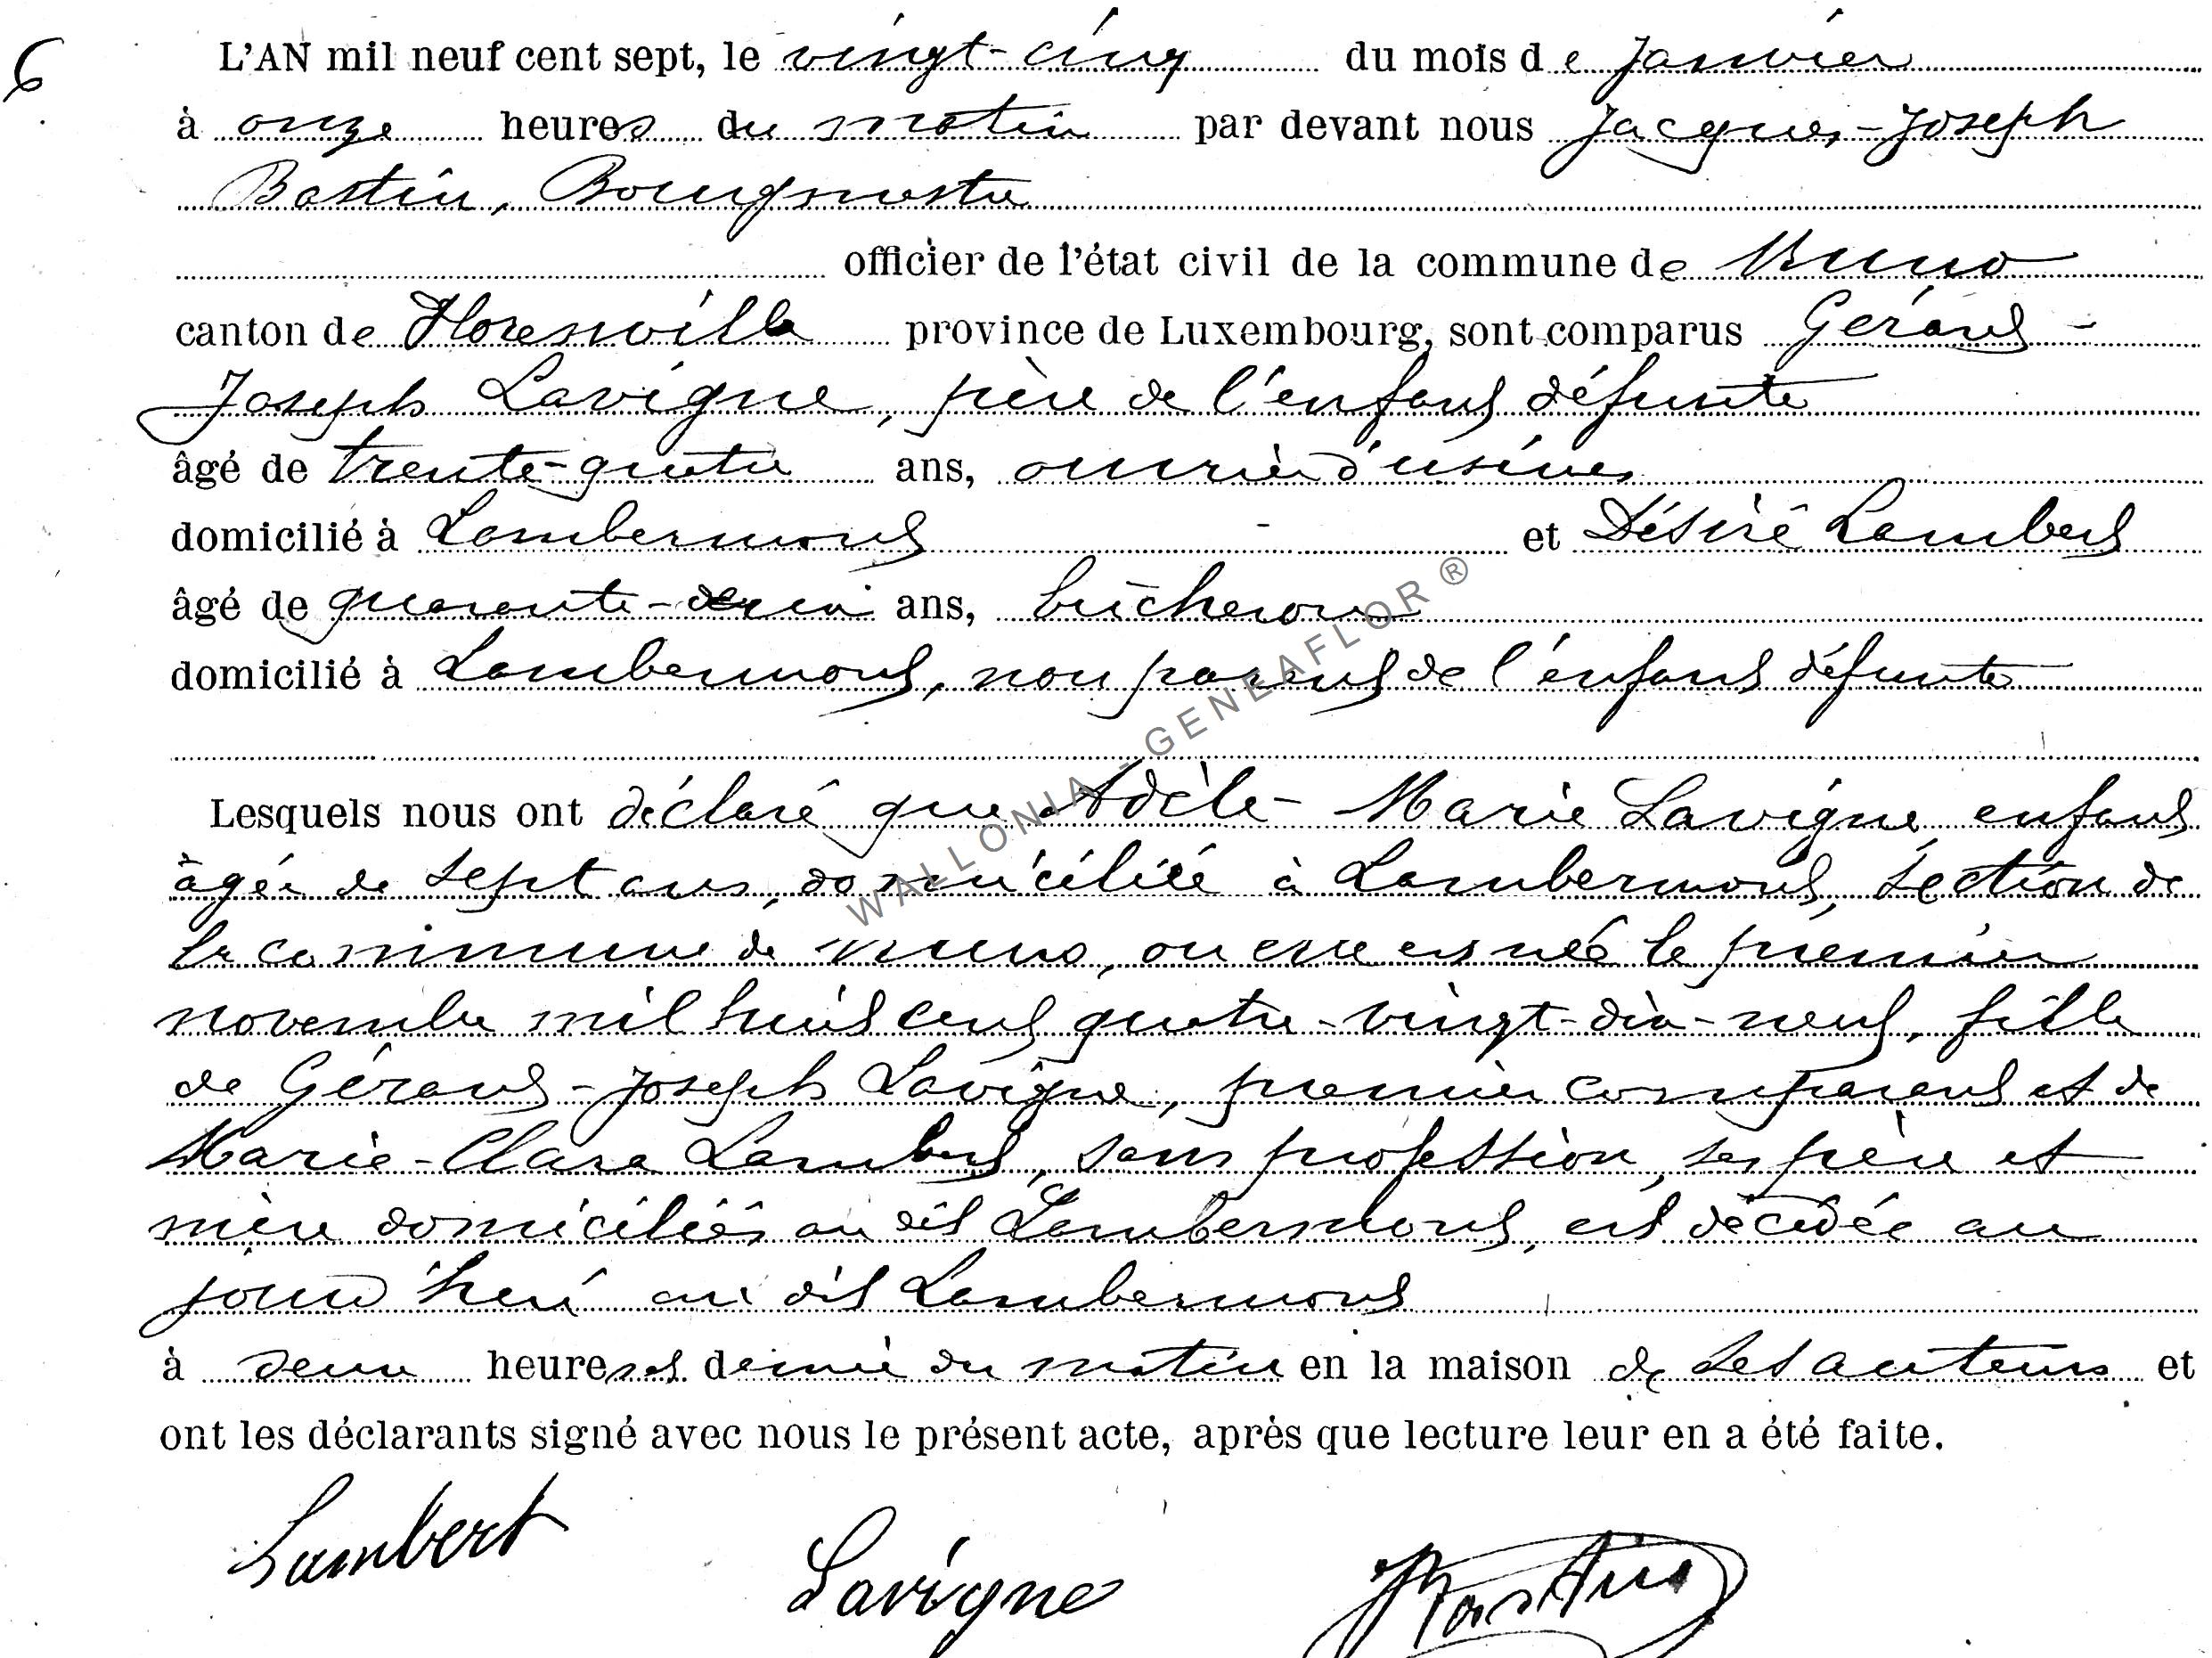 6
L'AN mil neuf cent sept, le vingt-cinq du mois de Janvier
à onze heures du matin par devant nous Jacques-Joseph
Bastin, Bourgmestre
officier de l'état civil de la commune de Muno
canton de Florenville province de Luxembourg, sont comparus Gérard-
Joseph Lavigne, père de l'enfant défunte
âgé de trente-quatre ans, ouvrier d'usine,
domicilié à Lambermont - et Désiré Lambert
âgé de quarante-deux ans, bûcheron
domicilié à Lambermont, non parent de l'enfant défunte
Lesquels nous ont déclaré que Adèle-Marie Lavigne, enfant
âgée de sept ans, domiciliée à Lambermont, section de
la commune de Muno, où elle est née le premier
novembre mil huit cent quatre-vingt-dix-neuf, fille
de Gérard-Joseph Lavigne, premier comparant et de
Marie-Clara Lambert, sans profession, ses père et
mère domiciliés au dit Lambermont, est décédée au
jourd'hui au dit Lambermont
à deux heures et demie du matin en la maison de ses auteurs et
ont les déclarants signé avec nous le présent acte, après que lecture leur en a été faite.
Lambert Lavigne JBastin
WALLONIA - GENEAFLOR ®